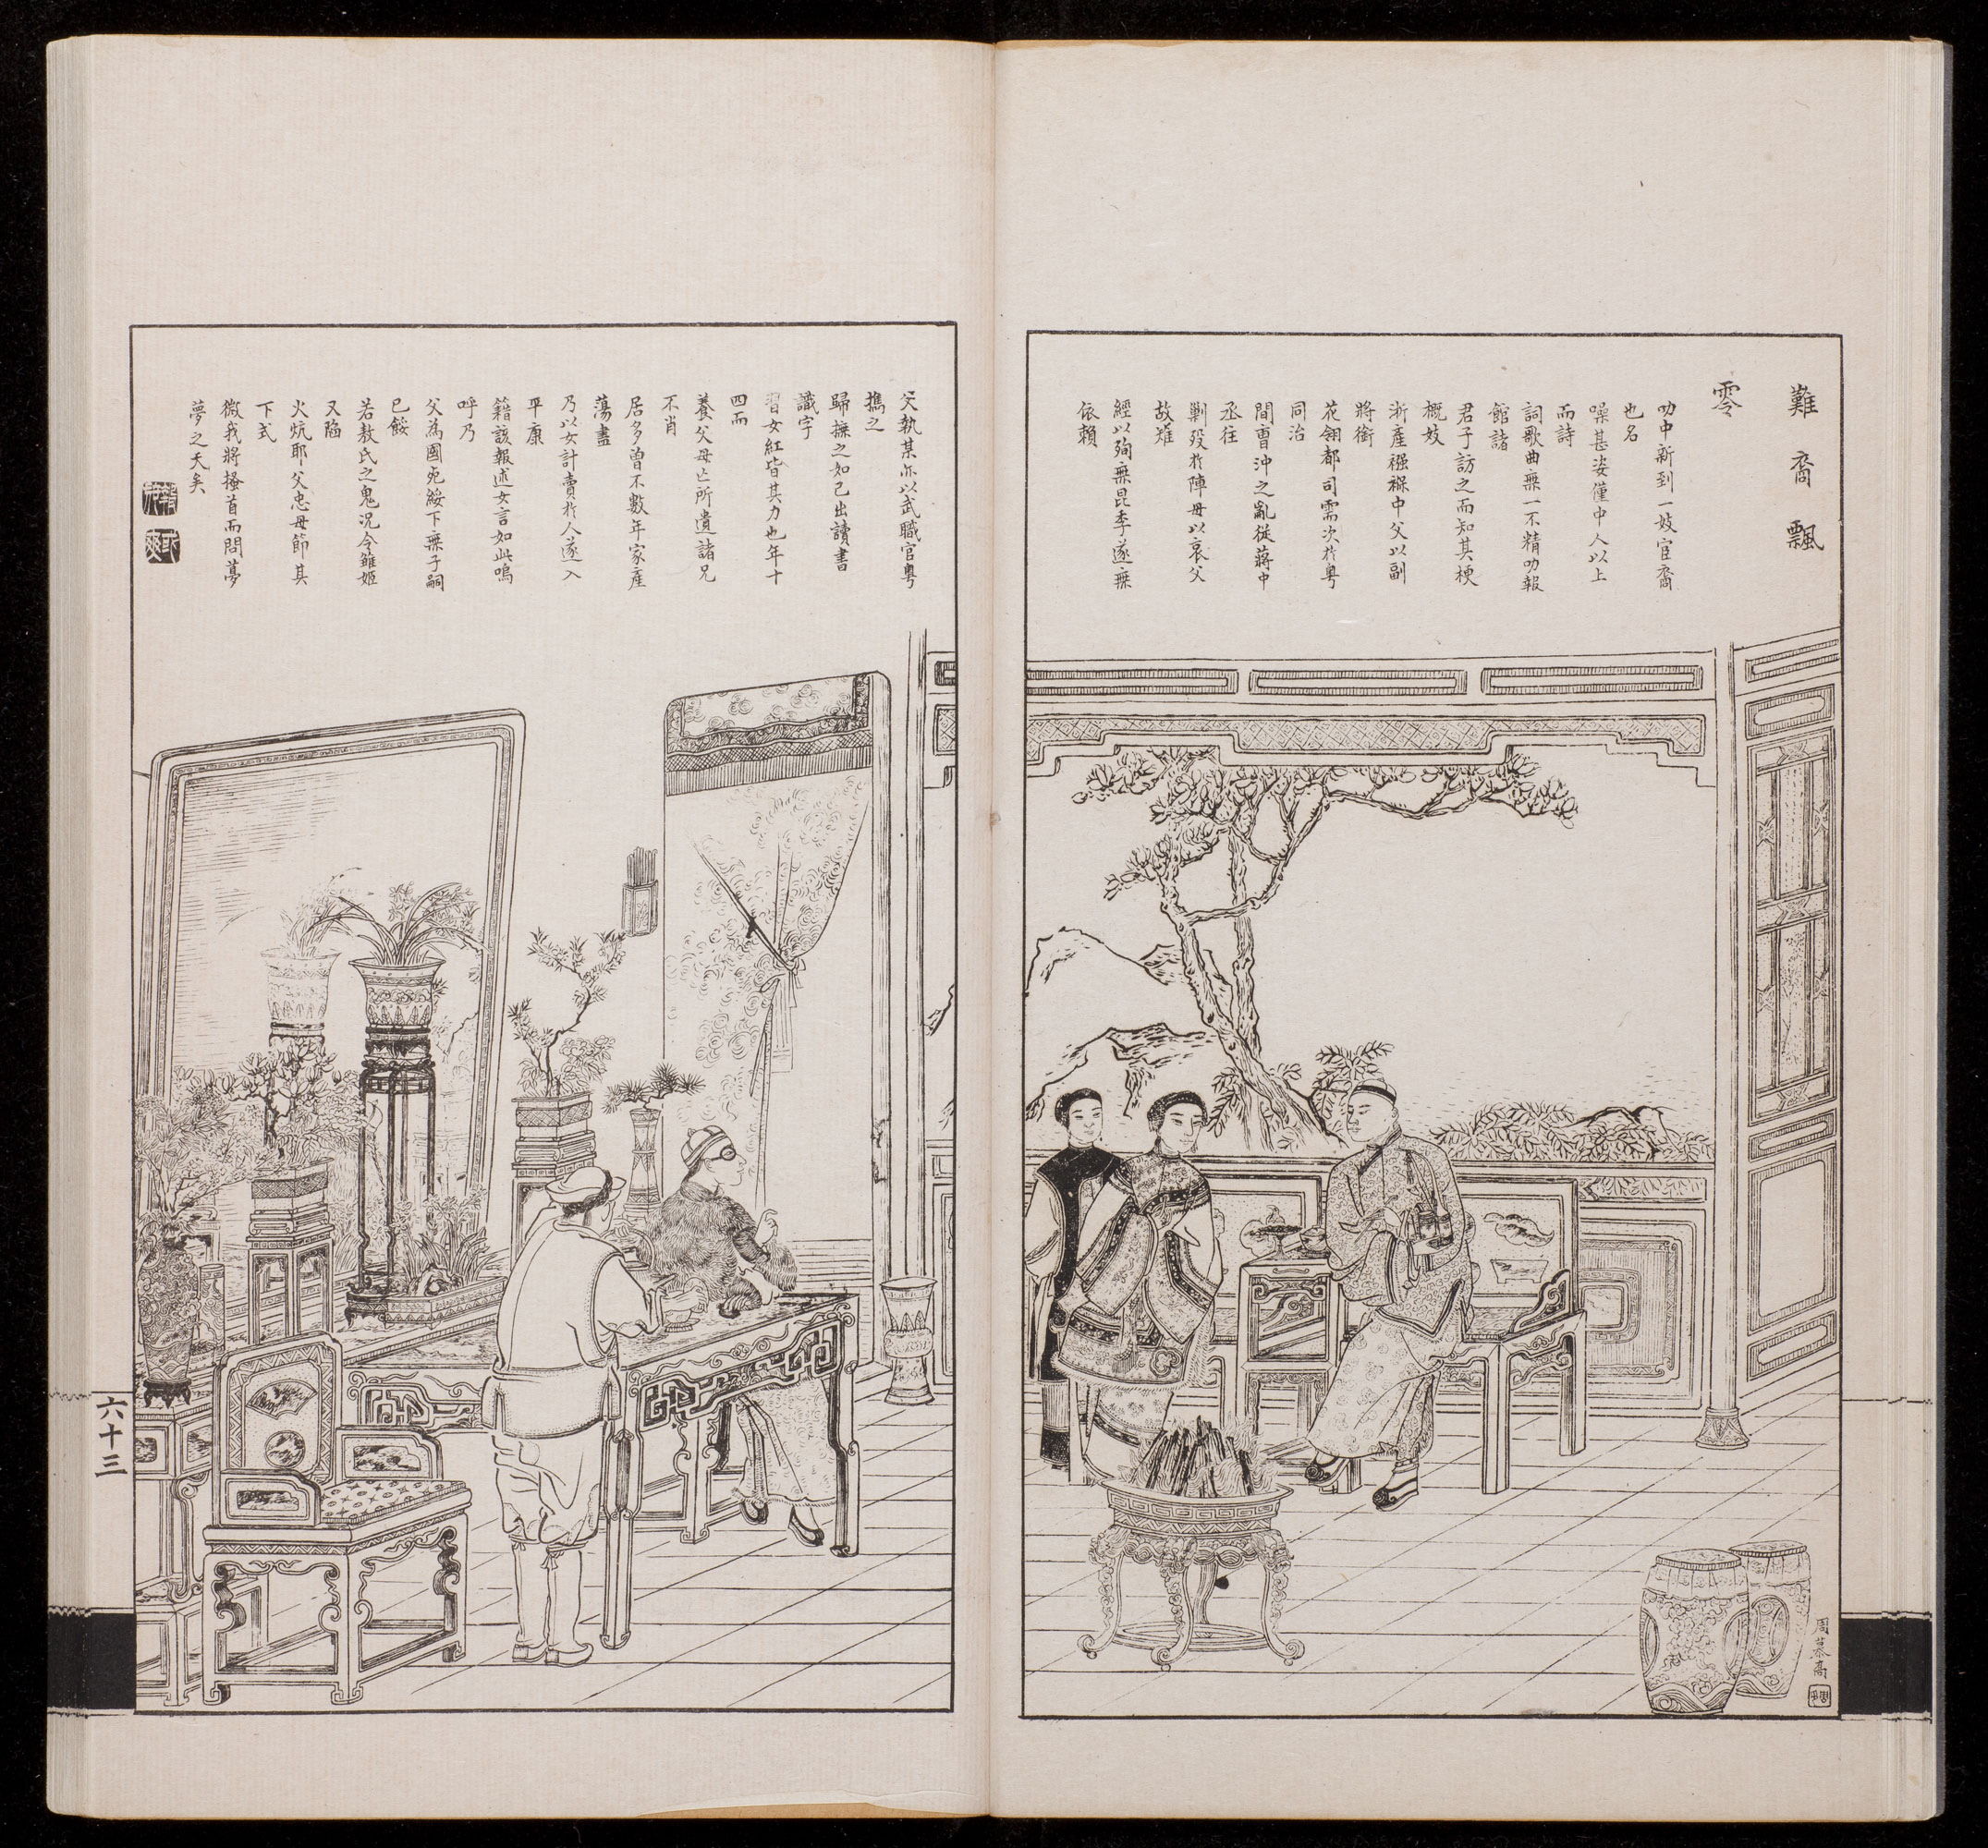 難裔飄
零
叻中新到一妓宦裔
也名
噪甚姿僅中人以上
而詩
詞歌曲無一不精叻報
館諸
君子訪之而知其梗
概妓
浙產襁褓中父以副
將銜
花翎都司需次於粵
同治
間曹沖之亂從蔣中
丞往
剿歿於陣母以哀父
故雉
經以殉無昆季遂無
依賴
父執某亦以武職官粵
攜之
歸撫之如己出讀書
識字
習女紅皆其力也年十
四而
養父母亡所遺諸兄
不肖
居多曾不數年家產
蕩盡
乃以女計賣於人遂入
平康
籍該報述女言如此嗚
呼乃
父為國死綏下無子嗣
已餒
若敖氏之鬼況令雛姬
又陷
火炕耶父忠母節其
下式
微我將搔首而問夢
夢之天矣
六十三
周慕喬